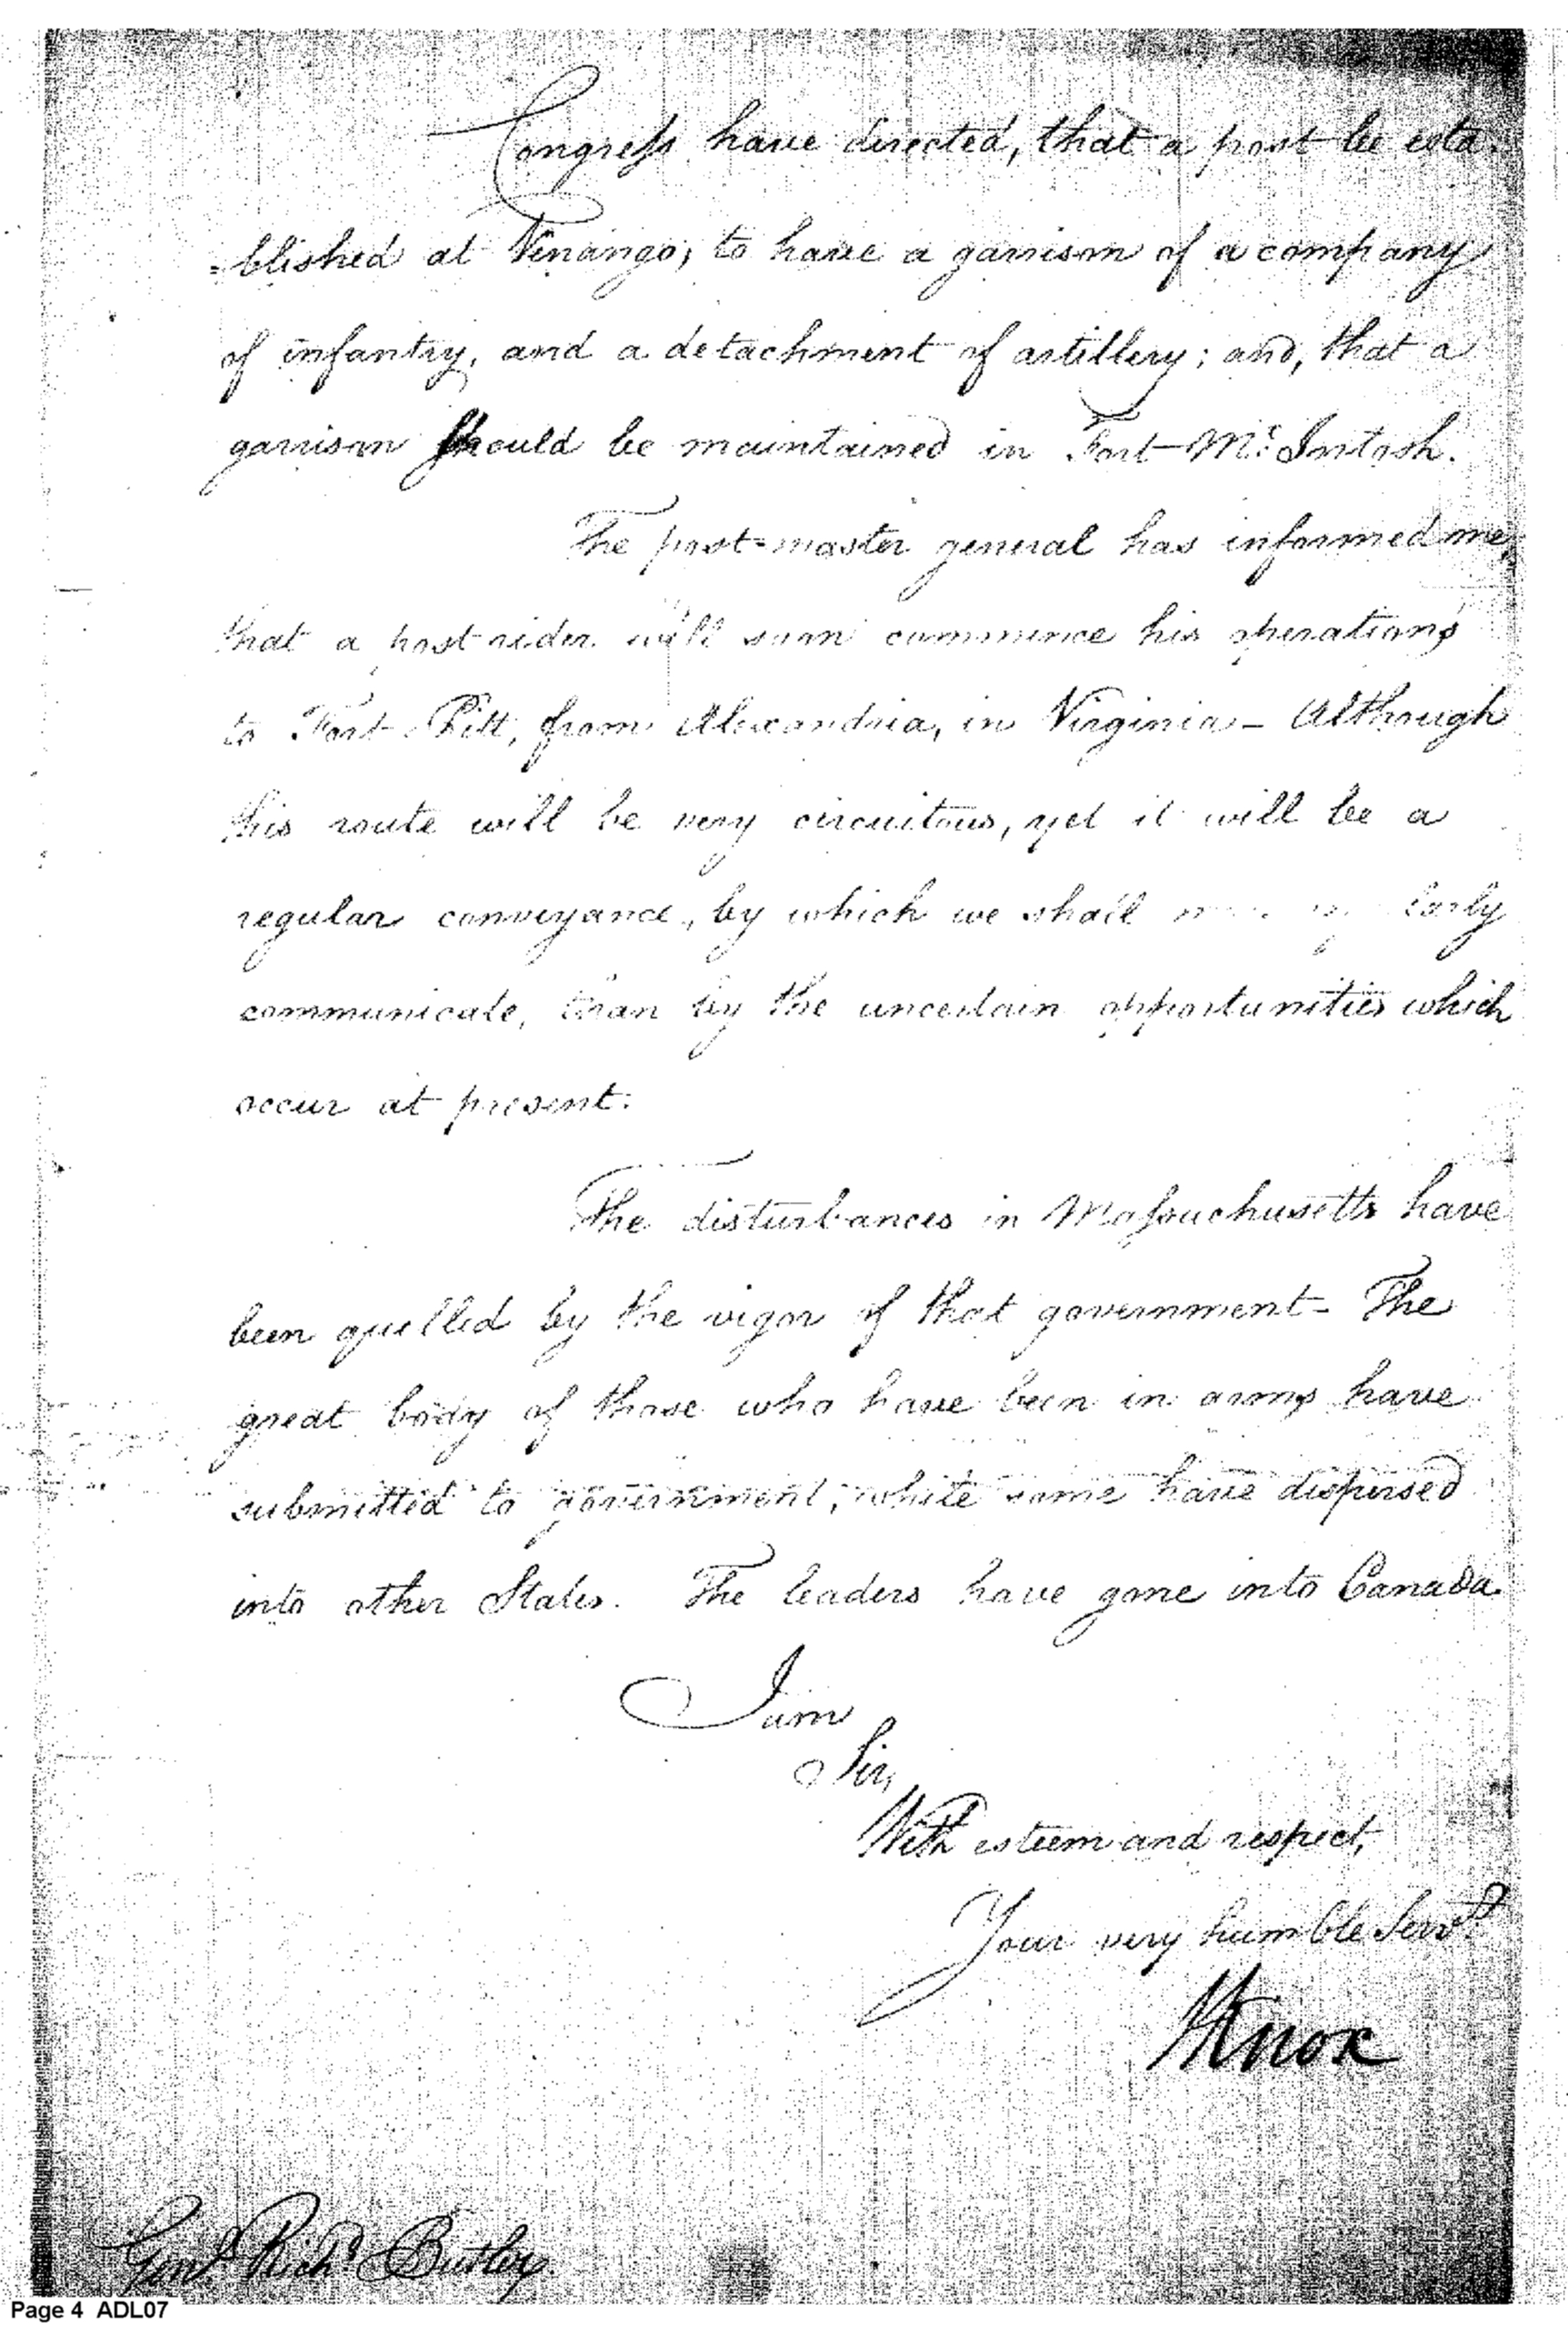 Congress have directed, that a post be esta-
=blished at Venango, to have a garrison of a company
of infantry, and a detachment of artillery; and, that a
garrison should be maintained in Fort McIntosh.
The post=master general has informed me,
that a post rider will soon commence his operations
to Fort Pitt, from Alexandria, in Virginia— Although
his route will be very circuitous, yet it will be a
regular conveyance, by which we shall
communicate, than by the uncertain opportunities which
occur at present.
The disturbances in Massachusetts have
been quelled by the vigor of that government— The
great body of those who have been in arms have
submitted to government; while some have dispersed
into other States. The leaders have gone into Canada.
I am
Sir,
With esteem and respect,
Your very humble Servt.
HKnox
Genl. Richd Butler.
Page 4 ADL07